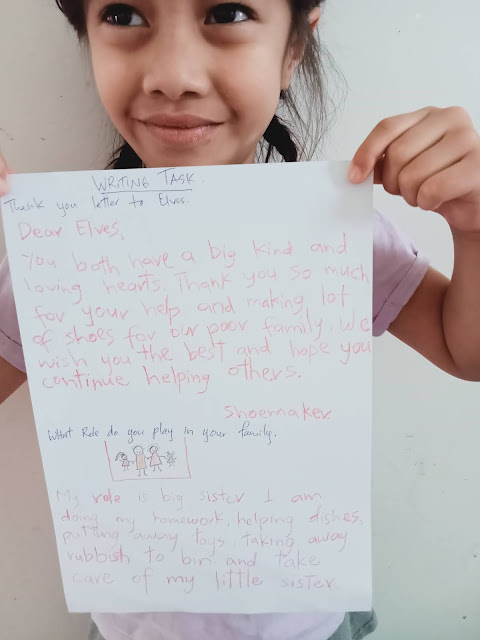 WRITING TASK.
Thank you letter to Elves.
Dear Elves,
You both have a big kind and
loving hearts. Thank you so much
for your help and making lot
of shoes for our poor family. We
wish you the best and hope you
continue helping others.
Shoemaker.
What Role do you play in your family.
My role is big sister I am
doing my homework, helping dishes,
putting away toys, taking away
rubbish to bin and take
care of my little sister.